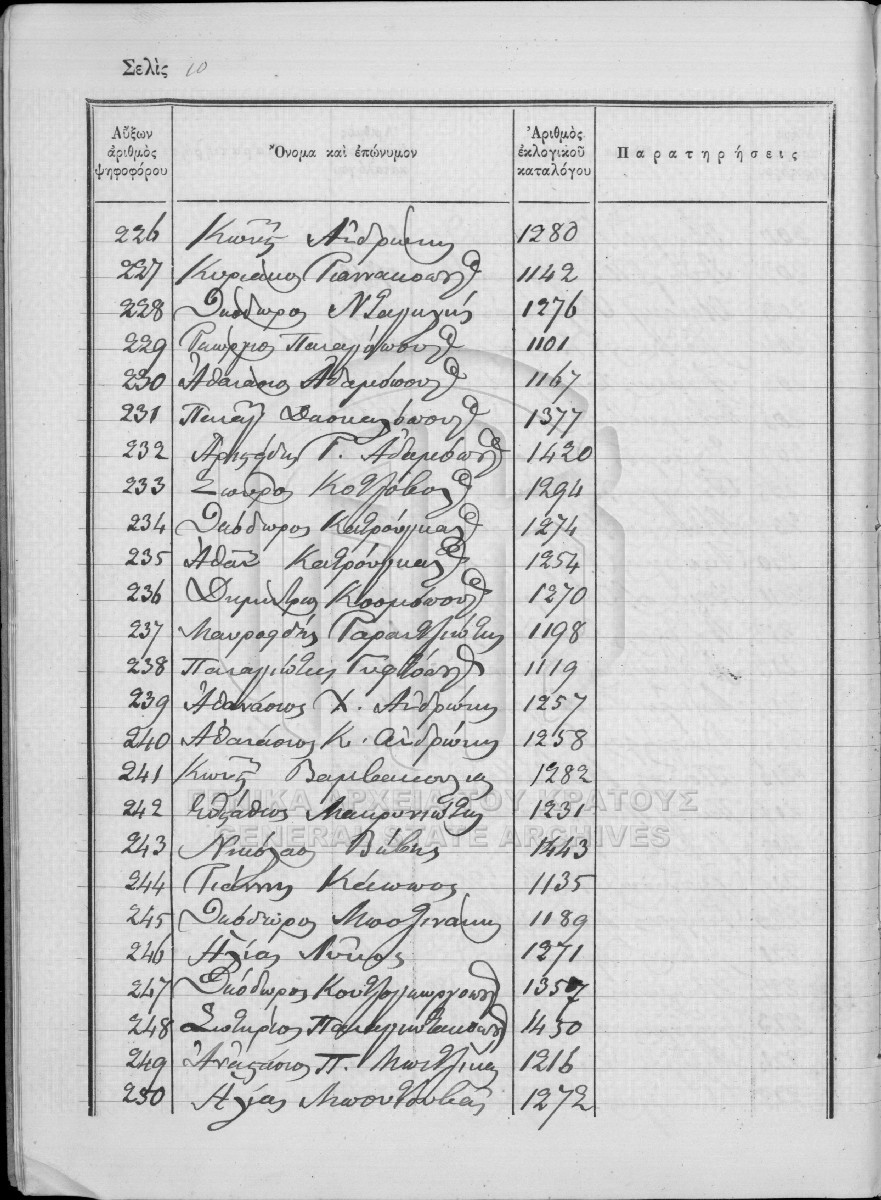 Σελὶς 10
Αὔξων ἀριθμὸς ψηφοφόρου Ὄνομα καὶ ἐπώνυμον Ἀριθμὸς ἐκλογικοῦ καταλόγου Παρατηρήσεις
226 Κωνῖ Ανδρώνης 1280
227 Κυριάκος Γιαννακόπουλος 1142
228 Θεόδωρος 1276
229 Γεώργιος Παναγόπουλος 1101
230 Ἀθανάσιος Ἀδαμόπουλος 1167
231 Παναγ Δασκαλόπουλος 1377
232 Γ. Ἀδαμόπουλος 1420
233 Σπυρος 1294
234 Θεόδωρος Κατρούγκας 1274
235 Ἀθαν Κατρούγκας 1254
236 Δημήτριος Κοσμόπουλος 1270
237 1198
238 Παναγιώτης Γυφτόπουλος 1119
239 Ἀθανάσιος Χ. Ανδρώνης 1257
240 Ἀθανάσιος Κ. Ανδρώνης 1258
241 Κωνῖ Βαμβακούλας 1282
242 Εὐστάθιος Μακρυνιώτης 1231
243 Νικόλαος Βίβης 1443
244 Γιάννης Κάππος 1135
245 Θεόδωρος Μποζινάκης 1189
246 Ηλίας Λύκος 1271
247 Θεόδωρος 1357
248 Σωτήριος Παναγιωτακόπουλος 1430
249 Ἀναστάσιος Π. 1216
250 Ηλίας 1272
ΓΕΝΙΚΑ ΑΡΧΕΙΑ ΤΟΥ ΚΡΑΤΟΥΣ
GENERAL STATE ARCHIVES